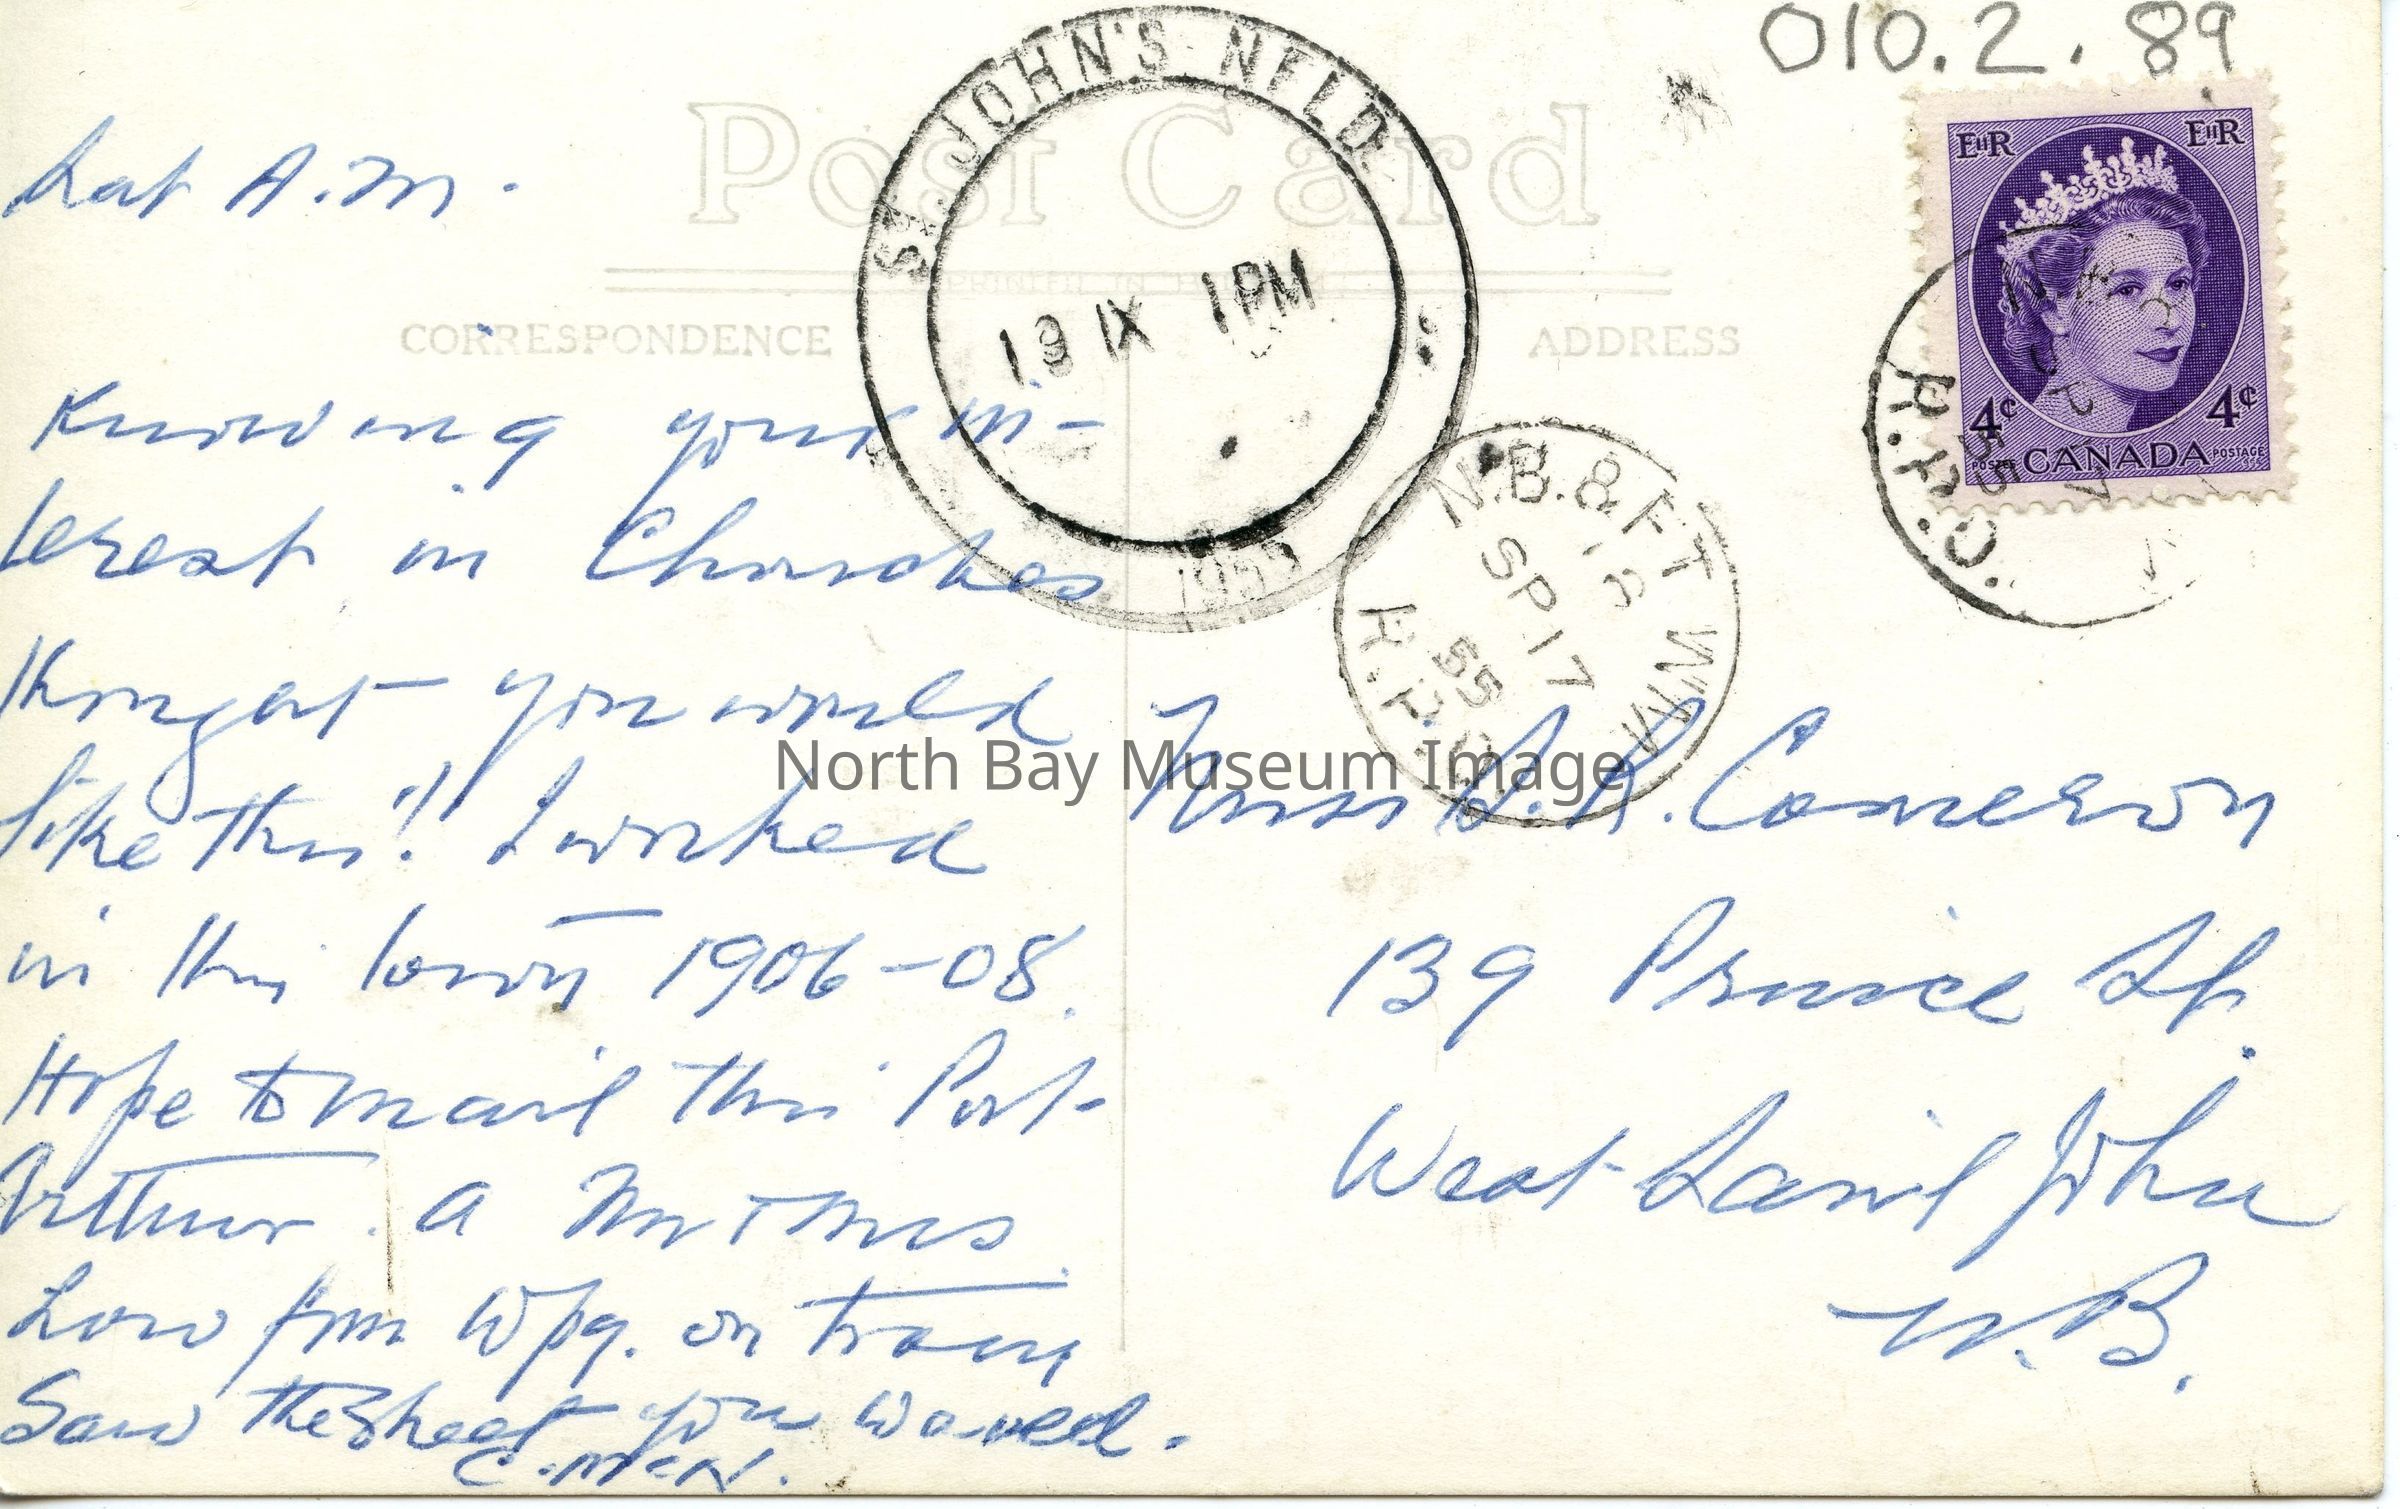 010.2.89
Post Card
ST. JOHN'S NFLD.
19 IX 1PM
1955
CORRESPONDENCE
ADDRESS
EIIR EIIR
4¢ 4¢
POSTES CANADA POSTAGE
R.P.O.
N.B. & FT WM
SP 17
55
R.P.O.
Sat A.M.
Knowing your in-
terest in Churches
thought you would
like this!! I worked
in this town 1906-08.
Hope to mail this Port-
Arthur. A Mr & Mrs
Low from Wpg. on train
Saw the sheet you waved.
C. McN.
Miss L. R. Cameron
139 Prince St.
West Saint John
N.B.
North Bay Museum Image